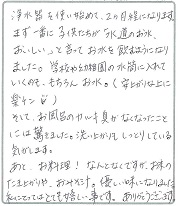 浄水器を使い始めて、2ヶ月位になります。
まず一番に子供たちが「水道のお水、
おいしい」と言ってお水を飲むようになり
ました。学校や幼稚園の水筒に入れて
いくのも、もちろんお水。(空上がりな上に
そして、お風呂のカルキ臭がなくなったこと
には驚きました。洗い上がり、しっとりしている
気がします。
あと、お料理！なんとなくですが、お米の
たき上がりや、おみそ汁。優しい味になりました
私にとってはとても嬉しい事です。ありがとうございます。